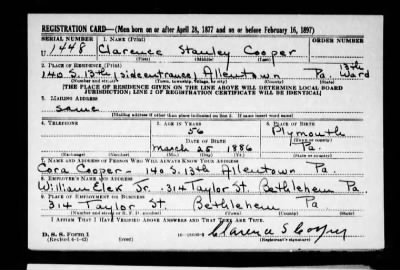 REGISTRATION CARD—(Men born on or after April 28, 1877 and on or before February 16, 1897)
SERIAL NUMBER 1. NAME (Print) ORDER NUMBER
U 1448 Clarence Stanley Cooper
(First) (Middle) (Last)
2. PLACE OF RESIDENCE (Print) 13th
140 S. 13th (side entrance) Allentown Pa. Ward
(Number and street) (Town, township, village, or city) (County) (State)
[THE PLACE OF RESIDENCE GIVEN ON THE LINE ABOVE WILL DETERMINE LOCAL BOARD
JURISDICTION; LINE 2 OF REGISTRATION CERTIFICATE WILL BE IDENTICAL]
3. MAILING ADDRESS
same
[Mailing address if other than place indicated on line 2. If same insert word same]
4. TELEPHONE 5. AGE IN YEARS 6. PLACE OF BIRTH
56 Plymouth
DATE OF BIRTH (Town or county)
March 25 1886 Pa.
(Exchange) (Number) (Mo.) (Day) (Yr.) (State or country)
7. NAME AND ADDRESS OF PERSON WHO WILL ALWAYS KNOW YOUR ADDRESS
Cora Cooper - 140 S. 13th Allentown Pa.
8. EMPLOYER'S NAME AND ADDRESS
William Elek Jr. 314 Taylor St. Bethlehem Pa.
9. PLACE OF EMPLOYMENT OR BUSINESS
314 Taylor St. Bethlehem Pa
(Number and street or R. F. D. number) (Town) (County) (State)
I AFFIRM THAT I HAVE VERIFIED ABOVE ANSWERS AND THAT THEY ARE TRUE.
D. S. S. Form 1 Clarence S Cooper
(Revised 4-1-42) (over) (Registrant's signature)